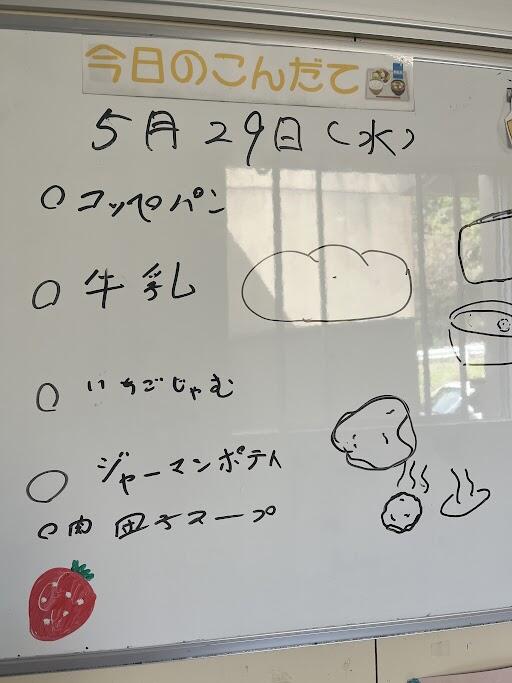 今日のこんだて
5月29日(水)
○コッペパン
○牛乳
○いちごじゃむ
○ジャーマンポテト
○肉団子スープ